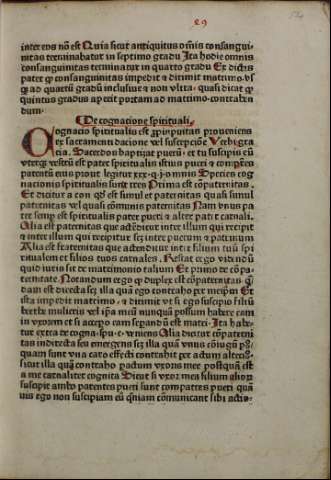 29
inter eos nõ est Quia sicut antiquitus om̃is consangui-
nitas terminabatur in septimo gradu Ita hodie omnis
consanguinitas terminatur in quarto gradu Ex dictis
patet consanguinitas impedit et dirimit matrimo. vs
ad quartũ gradũ inclusiue et non vltra. quasi dicat
quintus gradus aperit portam ad matrimo. contrahen
dum.
De cognatione spirituali
Cognacio spiritualis est ꝓpinquitas proueniens
ex sacramenti dacione vel suscepciõe Verbi gra
cia. Sacerdos baptizat puerũ. et tu suscipis eũ
vterque vestrũ est pater spiritualis istius pueri et
patentũ eius prout legitur Species cog
nacionis spiritualis sunt tres Prima est cõpaternitas.
Et dicitur a con quod est simul et paternitas quasi simul
paternitas vel quasi cõmunis paternitas Nam vnus pa
ter semp est spiritualis pater pueri et alter pater carnalis.
Alia est paternitas que attenditur inter illum qui recipit
et inter illum qui recipitur scz inter puerum et patrinum
Alia est fraternitas que attenditur inter filium tuũ spi
ritualem et filios tuos carnales. Restat ergo videndũ
quid iuris sit de matrimonio talium Et primo de cõpa-
ternitate Notandum ergo duplex est cõpaternitas
dam est directa scz illa quã ego contraho per meipm Et
ista impedit matrimo. et dirimit vt si ego suscipio filiũ
berthe mulieris vel ipa meũ nunquã possum habere eam
in vxorem et si accepero eam separandũ est matri. Ita habe-
tur extra de cogna. spi. c. veniens Alia dicitur cõpaterni
tas indirecta seu emergens scz illa quã vnus cõiugũ
quam sunt vna caro effecti contrahit per actum alteri.
sicut illa quã contraho patdum vxoris mee postquã est
a me carnaliter cognita Dicut si vxor mea filium alioꝝ
suscipit ambo parentes pueri sunt compatres pueri quã
uis ego non suscipiam eũ qm̃iam cõmunicant sibi actio-